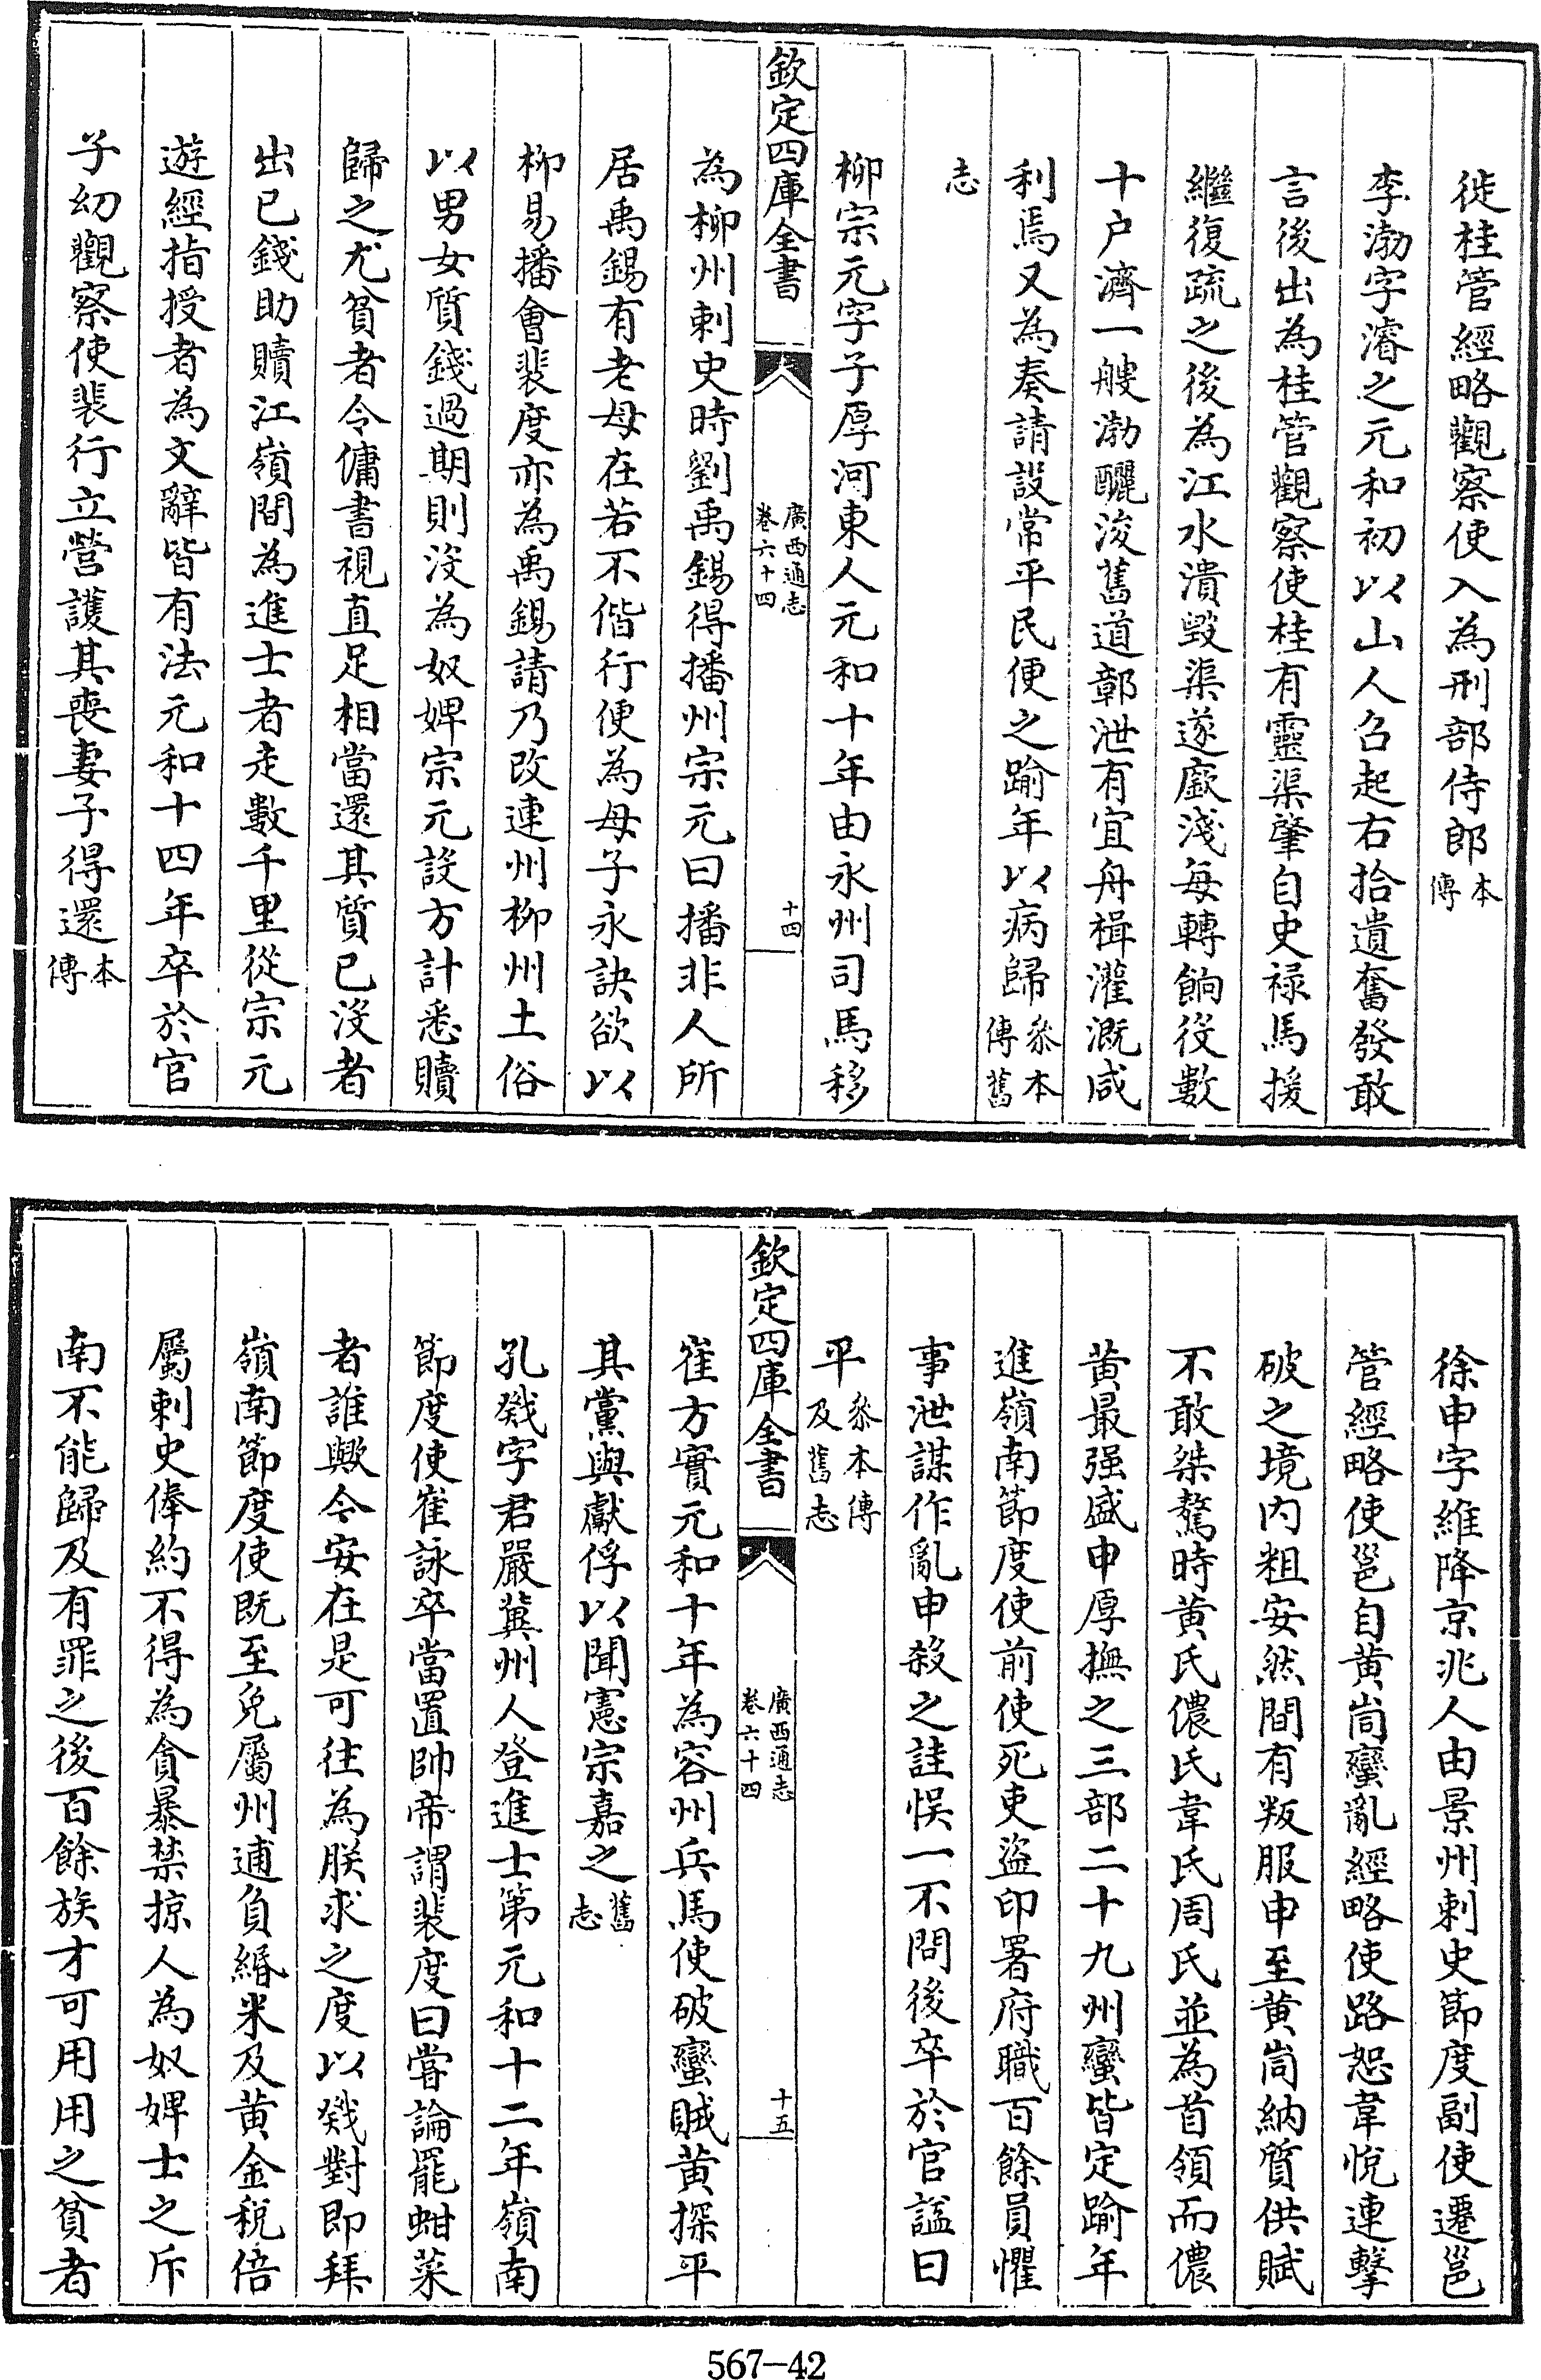 徙桂管經略觀察使入為刑部侍郎本傳
李渤字濬之元和初以山人召起右拾遺奮發敢
言後出為桂管觀察使桂有靈渠肇自史禄馬援
繼復疏之後為江水潰毀渠遂廞淺每轉餉役數
十户濟一艘渤釃浚舊道鄣泄有宜舟楫灌溉咸
利焉又為奏請設常平民便之踰年以病歸叅本傳舊
志
柳宗元字子厚河東人元和十年由永州司馬移
欽定四庫全書
廣西通志
卷六十四
十四
為柳州刺史時劉禹錫得播州宗元曰播非人所
居禹錫有老母在若不偕行便為母子永訣欲以
柳易播會裴度亦為禹錫請乃改連州柳州土俗
以男女質錢過期則沒為奴婢宗元設方計悉贖
歸之尤貧者令傭書視直足相當還其質已沒者
出已錢助贖江嶺間為進士者走數千里從宗元
遊經指授者為文辭皆有法元和十四年卒於官
子幼觀察使裴行立營護其喪妻子得還本傳
徐申字維降京兆人由景州刺史節度副使遷邕
管經略使邕自黄峝蠻亂經略使路恕韋悅連擊
破之境内粗安然間有叛服申至黄峝納質供賦
不敢桀驁時黄氏儂氏韋氏周氏並為首領而儂
黄最强盛申厚撫之三部二十九州蠻皆定踰年
進嶺南節度使前使死吏盜印署府職百餘員懼
事泄謀作亂申殺之詿悞一不問後卒於官諡曰
平叅本傳及舊志
欽定四庫全書
廣西通志
卷六十四
十五
崔方實元和十年為容州兵馬使破蠻賊黄探平
其黨與獻俘以聞憲宗嘉之舊志
孔戣字君嚴冀州人登進士第元和十二年嶺南
節度使崔詠卒當置帥帝謂裴度曰嘗論罷蚶菜
者誰歟今安在是可往為朕求之度以戣對即拜
嶺南節度使既至免屬州逋負緡米及黄金稅倍
屬刺史俸約不得為貪暴禁掠人為奴婢士之斥
南不能歸及有罪之後百餘族才可用用之貧者
567-42